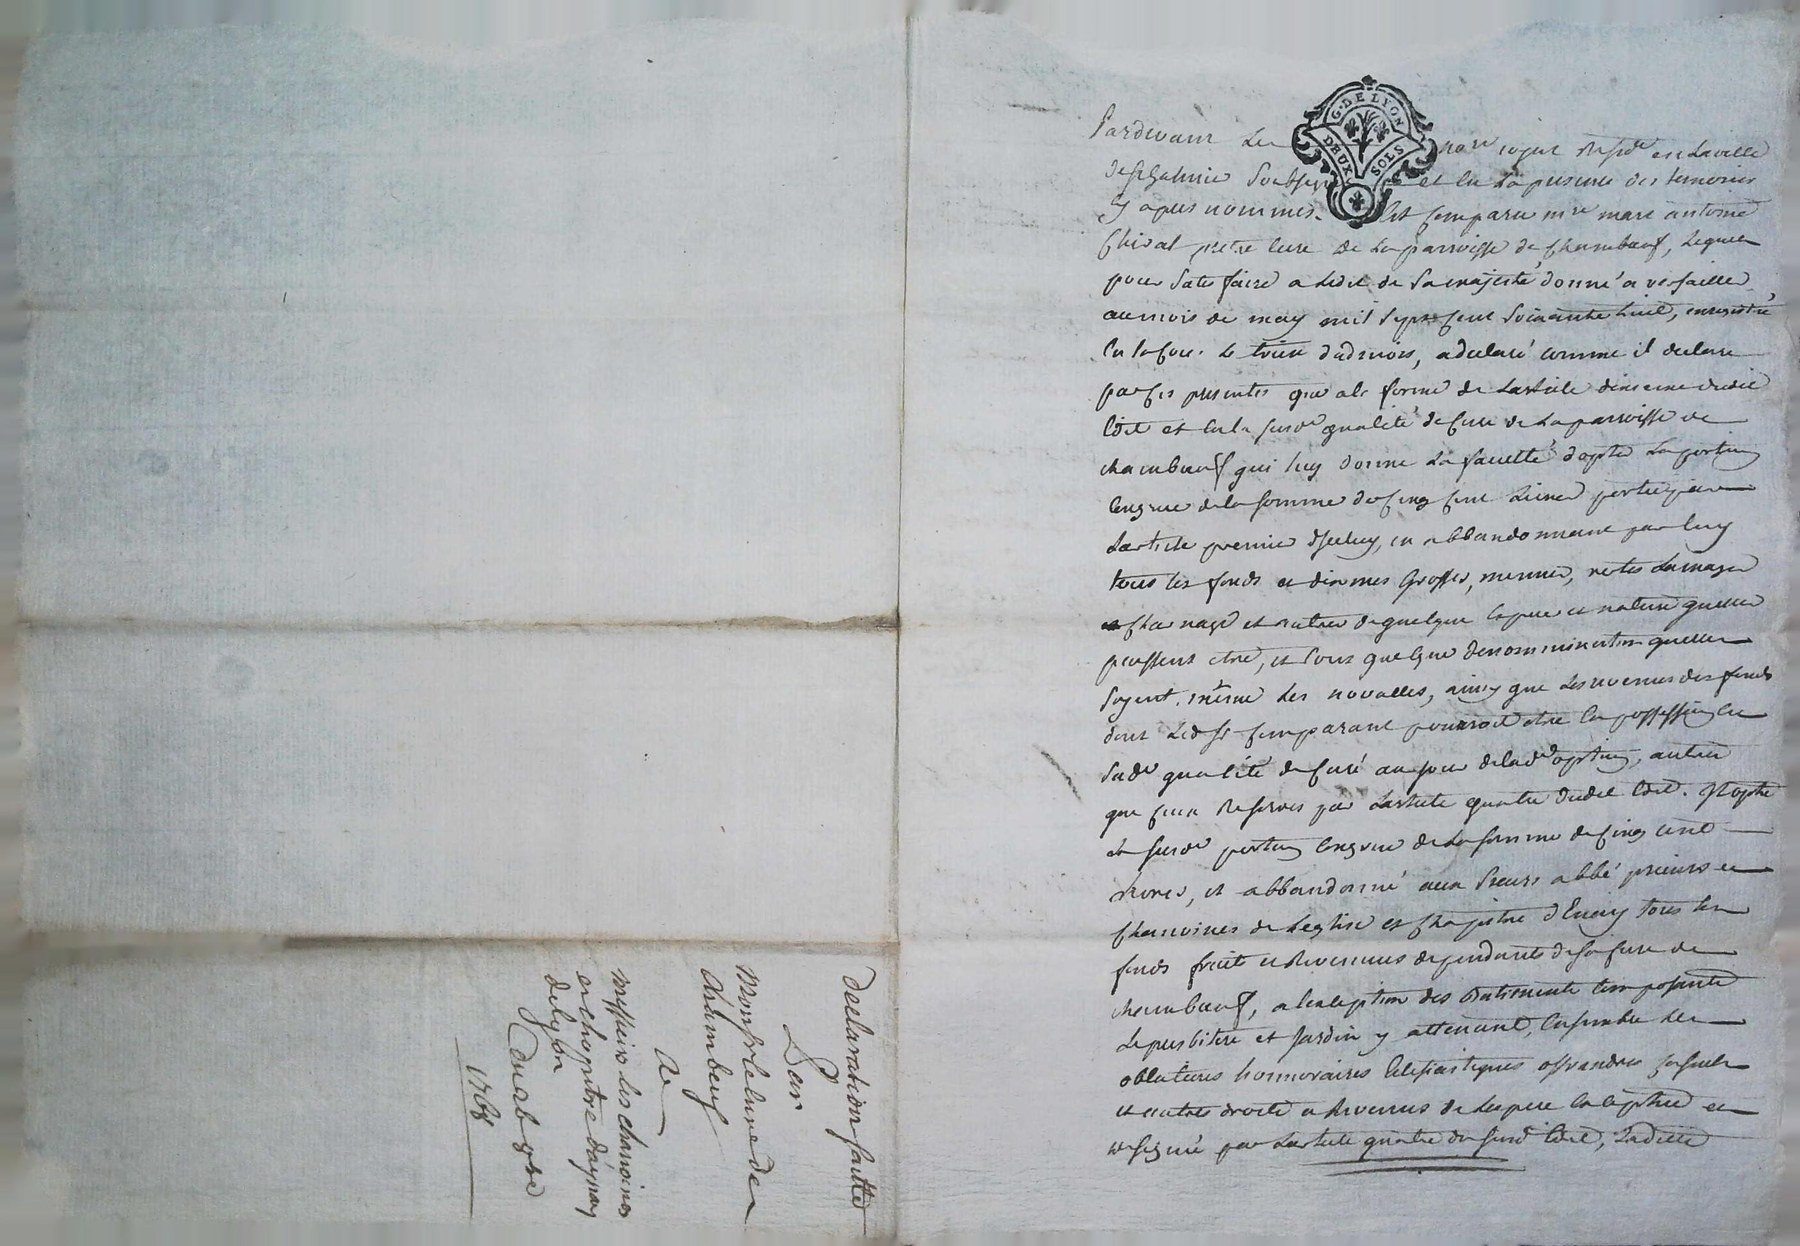 G. DE LYON
DEUX SOLS
Pardevant Le no.re royal resid.t en La ville
de st Galmier Soubsigné et en La presence des temoins
Cy apres nommés. Est Comparu m.re marc antoine
Chival pretre Curé de La parroisse de Chambœuf, Lequel
pour Satisfaire a Ledit de Sa majesté donné a versailles
au mois de may mil Sept Cent Soixante huit, enregistré
a declaré comme il declare
par Ces presentes que a la forme de Larticle dudit
Edit et en la Susd.e qualité de Curé de La parroisse de
chambœuf qui luy donne La faculté d'opter La portion
Congrue de la Somme de Cinq Cent Livres portée par
Larticle premier d'Iceluy, en abbandonnant par luy
tous les fonds et dixmes Grosses, menues, vertes Lainages
Charnage et autres de quelque Espece et nature quelles
puissent etre, et Sous quelque denommination quelles
Soyent. même Les novalles, ainsy que Les revenus des fonds
dont Led. Sr Comparant pouvroit etre En possession En
Sad.e qualité de Curé au jour de lad.e option, autres
que Ceux Reservés par Larticle quatre dudit Edit. Il opte
La Susd.e portion Congrue de La Somme de Cinq Cent
Livres, et abbandonne aux Sieurs abbé prieurs et
Chanoines de Leglise et Chapitre d'Enay tous les
fonds fruits et Revenus dependants de Sa Cure de
chambœuf, a Lexception des Batiments Composants
Le presbitere et Jardin y attenant, Ensemble Les
oblations honnoraires Eclesiastiques offrandes Casuels
et autres droits et Revenus de Lespece Exceptée et
designé par Larticle quatre du Susd. Edit, Ladite
declaration faitte
Par
Monsr le Curé de
chambeuf
A
messieurs les chanoines
et chapitre d'aynay
de lyon
Du 8bre
1768